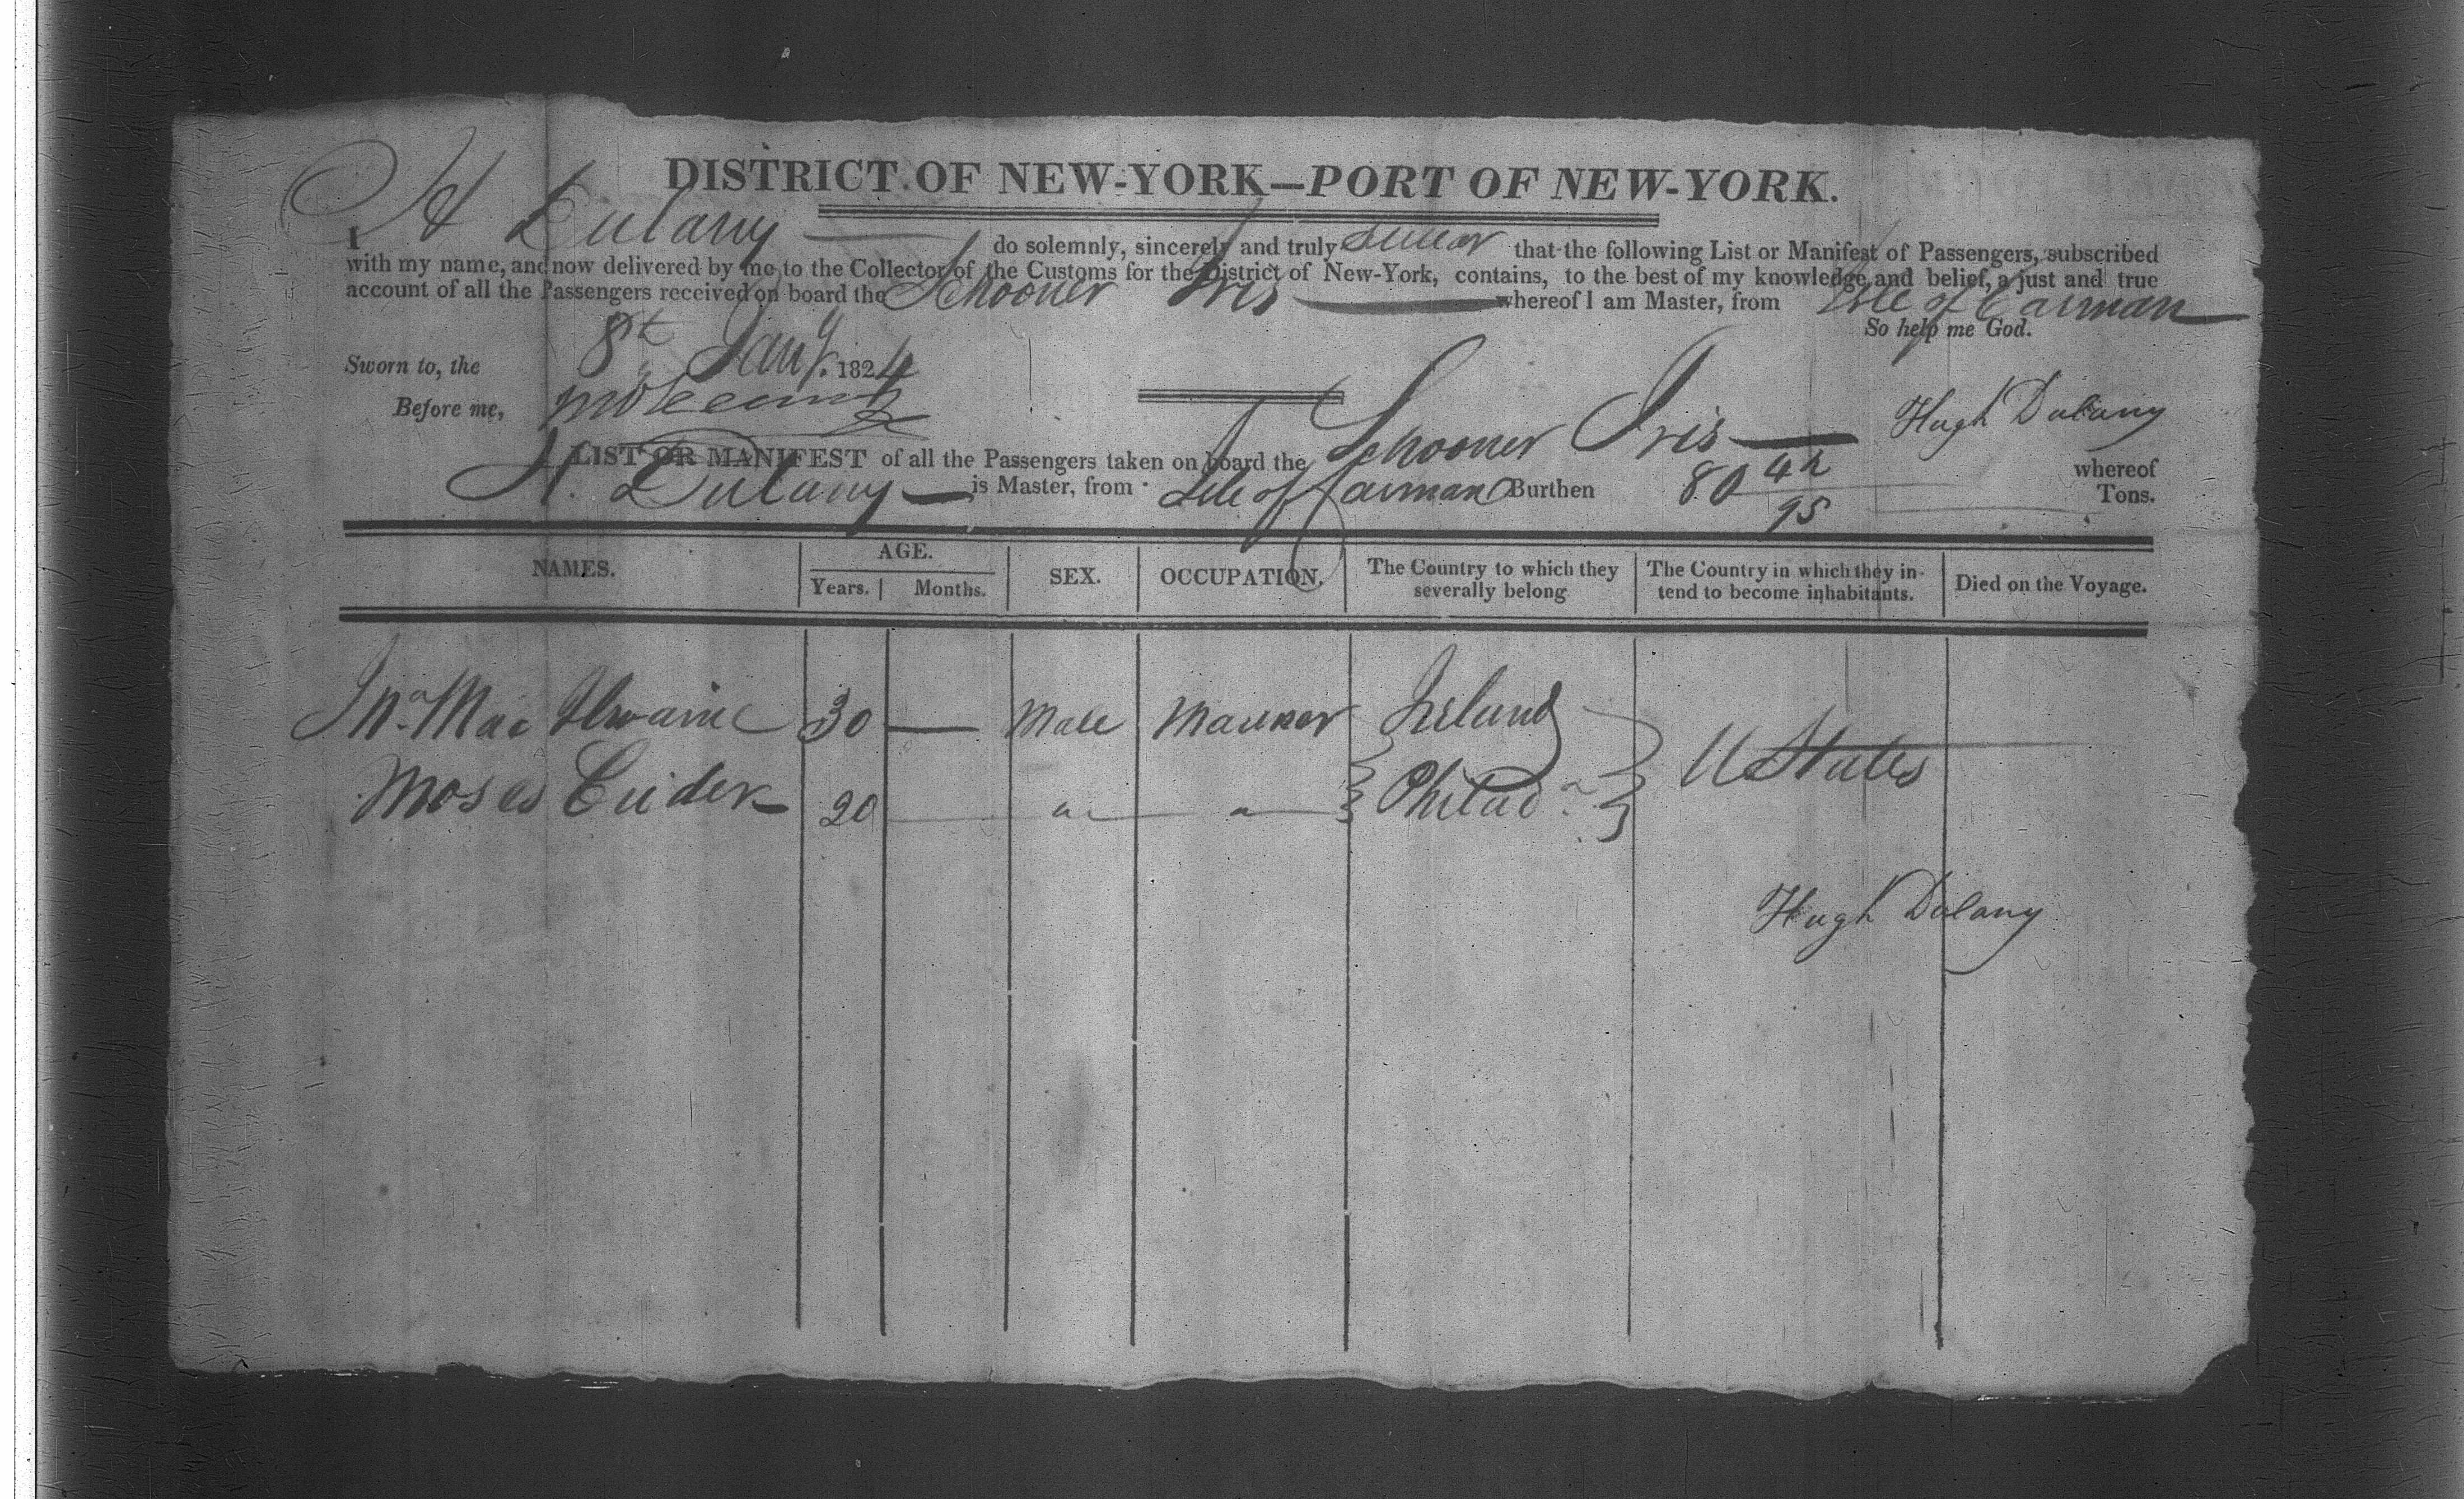 DISTRICT OF NEW-YORK—PORT OF NEW-YORK.
I H Dulany do solemnly, sincerely and truly swear that the following List or Manifest of Passengers, subscribed
with my name, and now delivered by me to the Collector of the Customs for the District of New-York, contains, to the best of my knowledge and belief, a just and true
account of all the Passengers received on board the Schooner Iris whereof I am Master, from Isle of Carman
So help me God.
Sworn to, the 8th Jany. 1824
Before me,
Hugh Dulany
LIST OR MANIFEST of all the Passengers taken on board the Schooner Iris whereof
H. Dulany is Master, from Isle of Carman Burthen 80 42/95 Tons.
NAMES. AGE. Years. Months. SEX. OCCUPATION. The Country to which they severally belong The Country in which they intend to become inhabitants. Died on the Voyage.
Jno. Mac Ilwaine 30 — Male Mariner Ireland U States
Moses Crider 20 " " Philada
Hugh Dulany